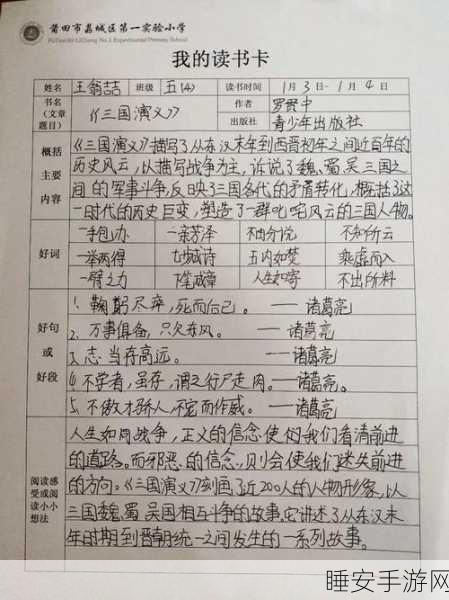 莆田市荔城区第一实验小学
PuTian市LiCheng No.1 Experimental Primary School
我的读书卡
姓名 王翁喆 班级 五(4) 读书时间 1月3日-1月4日
书名(文章题目) 《三国演义》 作者 罗贯中
出版社 青少年出版社
概括主要内容
《三国演义》描写了从东汉末年到西晋初年之间近百年的
历史风云,以描写战争为主,诉说了魏、蜀、吴三国之
间的军事斗争,反映了三国各代的矛盾转化,概括了这
一时代的历史巨变,塑造了一群叱咤风云的三国人物。
好词
一手包办 一亲芳泽 不由分说 不知所云
一举两得 七步成诗 五内如焚 乘虚而入
一臂之力 下笔成章 人生如寄 不出所料
好句或好段
1、鞠躬尽瘁,死而后已。——诸葛亮
2、万事俱备,只欠东风。——诸葛亮
3、志当存高远。——诸葛亮
4、不学者,虽存,谓之行尸走肉。——诸葛亮。
5、不傲才骄人,不宠而作威。——诸葛亮
阅读感受或阅读小小想法
人生如同战争,正义的信念使我们看清前进
的道路。而邪恶的信念,则会使我们迷失前进
的方向。《三国演义》刻画了近200人的人物形象,以
三国魏、蜀、吴国相互斗争的故事。它讲述了从东汉末
年时期到晋朝统一之间发生的一系列故事。
睡安手游网